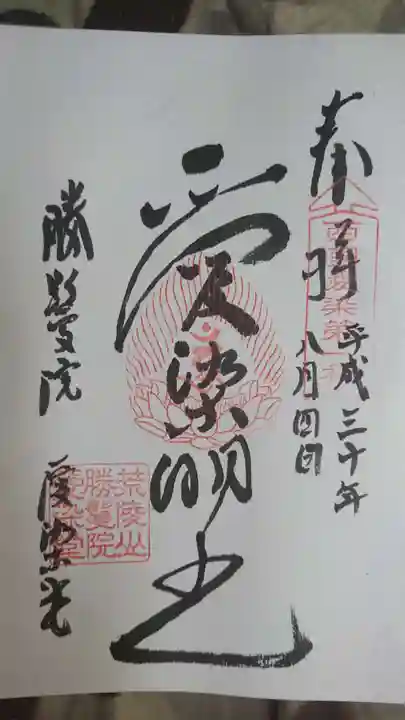 奉拝
平成三十年
八月四日
西国愛染第一番
愛染明王
勝鬘院 愛染堂
荒陵山
勝鬘院
愛染堂